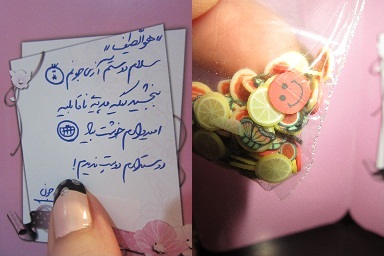 «هواللطیف»
سلام دوستم آرزی جونم
ببخشید دیگه هدیهٔ ناقابلیه
امیدوارم خوشت بیاد
دوستدارم دوستِ ندیدم!